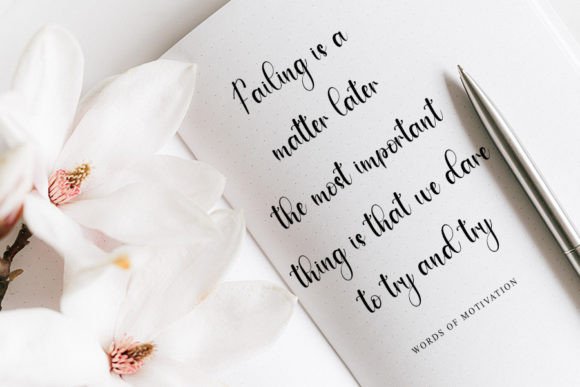 Failing is a
matter later
the most important
thing is that we dare
to try and try
WORDS OF MOTIVATION